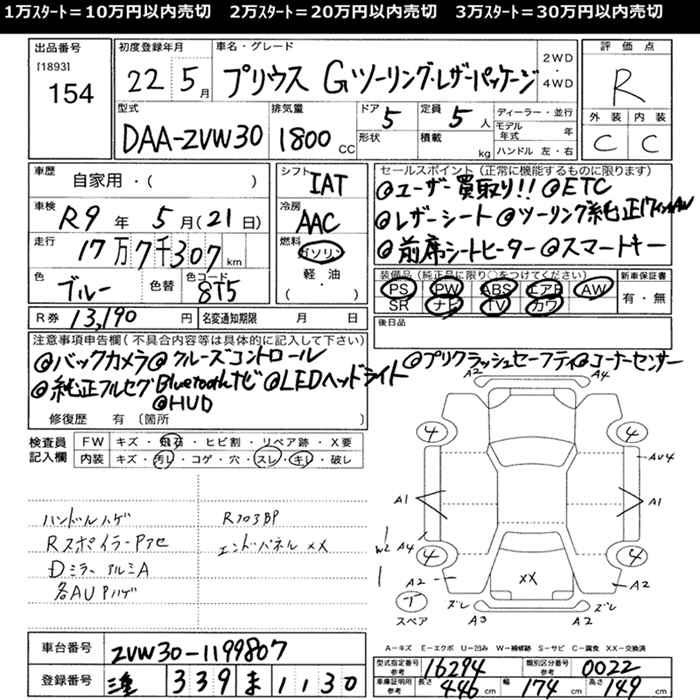 1万ｽﾀｰﾄ＝10万円以内売切　2万ｽﾀｰﾄ＝20万円以内売切　3万ｽﾀｰﾄ＝30万円以内売切
出品番号
[1893]
154
初度登録年月
22 5月
車名・グレード
プリウス Gツーリング・レザーパッケージ
2WD
・
4WD
評価点
R
外装 内装
C C
型式
DAA-ZVW30
排気量
1800 CC
ドア
5
形状
定員
5 人
積載
kg
ディーラー・並行
モデル年式 年
ハンドル 左・右
車歴
自家用・( )
車検
R9 年 5 月(21日)
走行
17万7千307 km
色
ブルー
色替
色コード
8T5
シフト
IAT
冷房
AAC
燃料
ガソリン
軽・油
( )
セールスポイント(正常に機能するものに限ります)
@ユーザー買取り!! @ETC
@レザーシート @ツーリング純正17インチAW
@前席シートヒーター @スマートキー
装備品(純正品に限り○をつけてください)
PS PW ABS エアB AW
SR ナビ TV カワ
新車保証書
有・無
R券 13,190 円
名変通知期限 月 日
後日品
注意事項申告欄(不具合内容等は具体的に記入して下さい)
@バックカメラ@クルーズコントロール
@プリクラッシュセーフティ@コーナーセンサー
@純正フルセグBluetoothナビ @LEDヘッドライト
@HUD
修復歴 有 〔箇所
検査員記入欄
FW キズ・飛石・ヒビ割・リペア跡・X要
内装 キズ・汚レ・コゲ・穴・スレ・キレ・破レ
ハンドルハゲ
RスポイラーPアセ
DミラーアルミA
各AUPハゲ
R703BP
エンドパネルXX
A2 A4
4 4
AU4
A1 A1
W2 A4
4 4
A2 XX A2
T
スペア
ズレ ズレ
A3 A2
A－キズ E－エクボ U－凹み W－補修跡 S－サビ C－腐食 XX－交換済
車台番号
ZVW30-1199807
登録番号
339 ま 1130
型式指定番号
参考
16294
類別区分番号
参考
0022
車庫証明用
参考
長さ
446 cm
幅
174 cm
高さ
149 cm